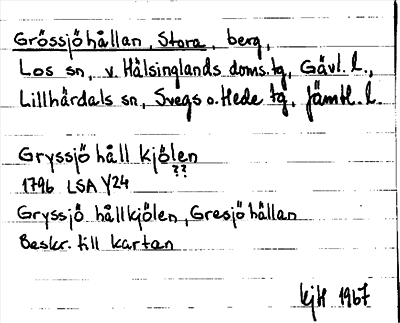 Grössjöhållan, Stora, berg,
Los sn, v. Hälsinglands doms.tg, Gävl. l.,
Lillhärdals sn, Svegs o. Hede tg, Jämtl. l.
Gryssjö håll kjölen
??
1796 LSA Y24
Gryssjö hållkjölen, Gresjöhållan
Beskr. till kartan
kjH 1967